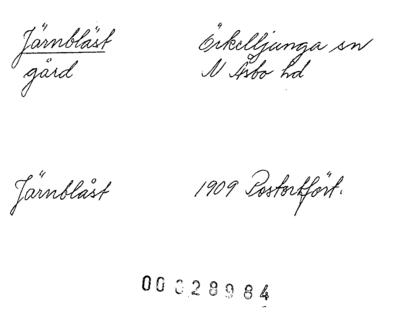 Järnbläst Örkelljunga sn
gård N Åsbo hd
Järnblåst 1909 Postortfört.
00028984